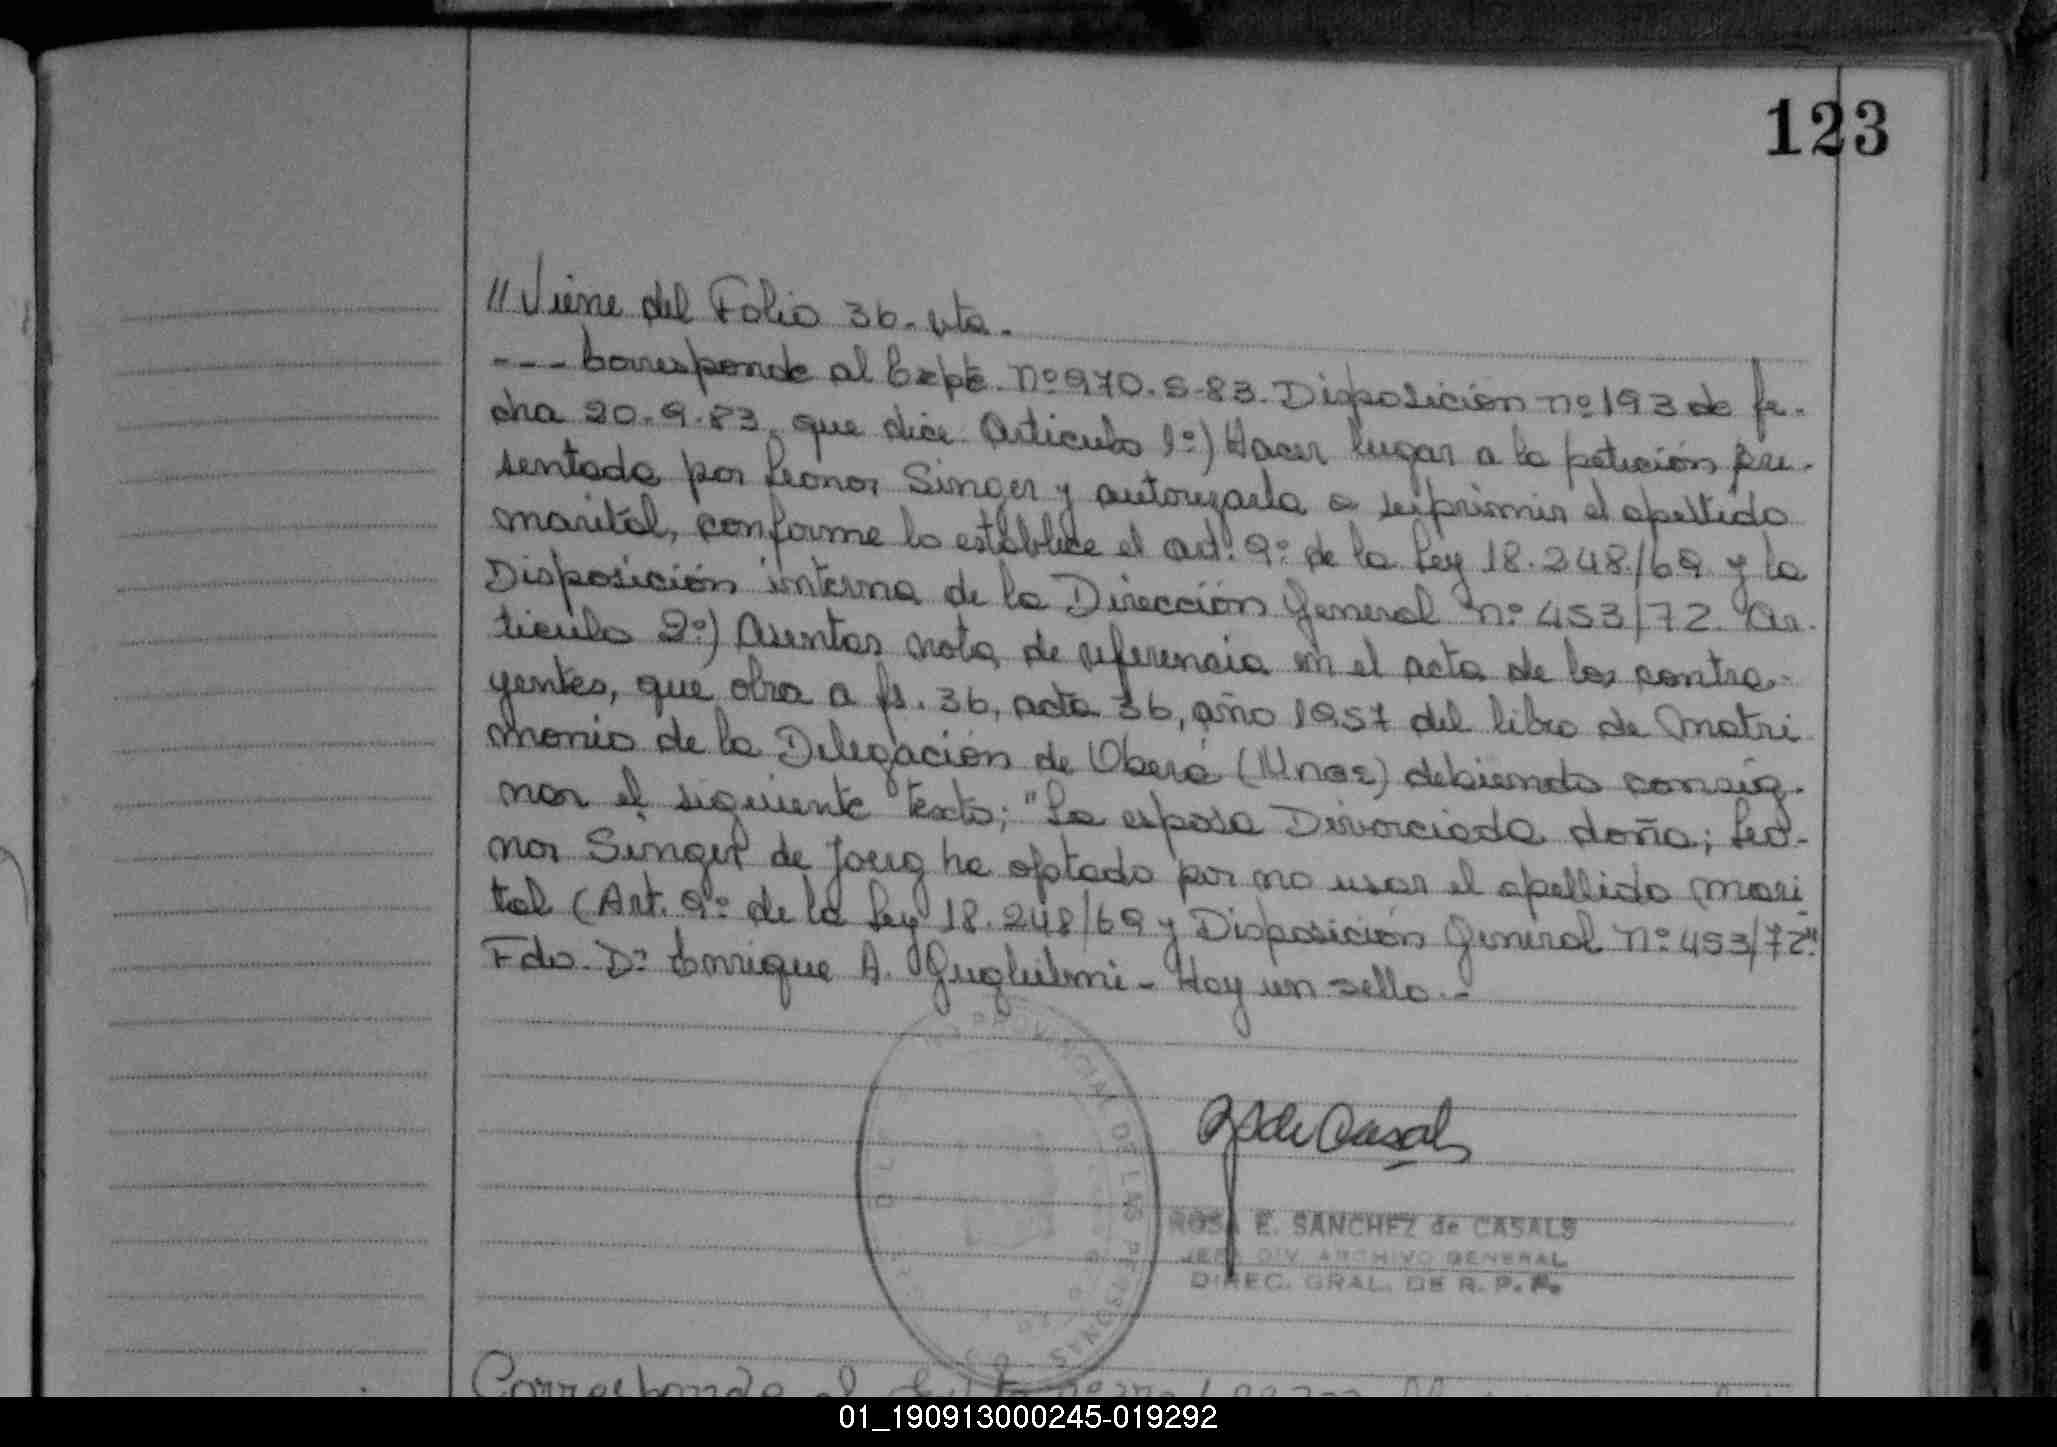 123
"Viene del Folio 36. vta.
--- Corresponde al Expte. nº 970.S-83. Disposición nº 193 de fe-
cha 20.9.83. que dice Articulo 1º) Hacer lugar a la petición pre-
sentada por Leonor Singer y autorizarla a suprimir el apellido
marital, conforme lo establece el art. 9º de la Ley 18.248/69 y la
Disposición interna de la Dirección General nº 453/72. Ar-
ticulo 2º) Asentar nota de referencia en el acta de los contra-
yentes, que obra a fs. 36, acta 36, año 1957 del libro de Matri
monio de la Delegación de Oberá (Mnes) debiendo consig-
nar el siguiente texto; "La esposa Divorciada doña; Leo-
nor Singer de Joug ha optado por no usar el apellido mari
tal (Art. 9º de la Ley 18.248/69 y Disposición General nº 453/72"
Fdo. Dº Enrique A. Guglielmi - Hay un sello.-
PROVINCIAL DE LAS PERSONAS
ROSA E. SANCHEZ de CASALS
JEFA DIV. ARCHIVO GENERAL
DIREC. GRAL. DE R. P. P.
Corresponde al
01_190913000245-019292